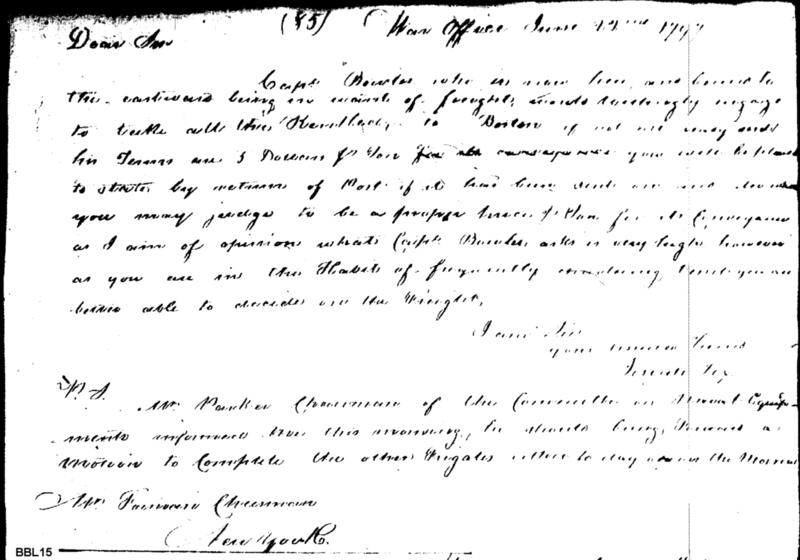 (85) War Office June 22nd 1797
Dear Sir
Capt Bowler who is now here, and bound to
the eastward being in want of freight, would engage
to take all the to Boston if not already
his Terms are 5 Dollars pr Ton you will be pleased
to state by return of Post if it has been sent on
you may judge to be a proper price pr Ton for its Conveyance
as I am of opinion what Capt Bowler asks is very high however
as you are in the Habits of frequently
better able to decide on the Freight,
I am Sir
your Friend
P.S.
Mr. Parker Chairman of the Committee on Naval Equip-
ments informed me this morning, he should bring forward a
motion to Complete the other Frigates either to day or on the Morrow
Mr. Cheesman
New York.
BBL15